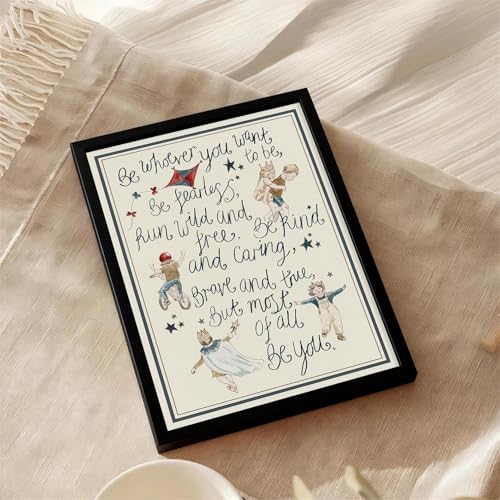 Be whoever you want
to be,
Be fearless,
Run Wild and
free. Be kind
and Caring,
Brave and true,
But most
Of all
Be You.